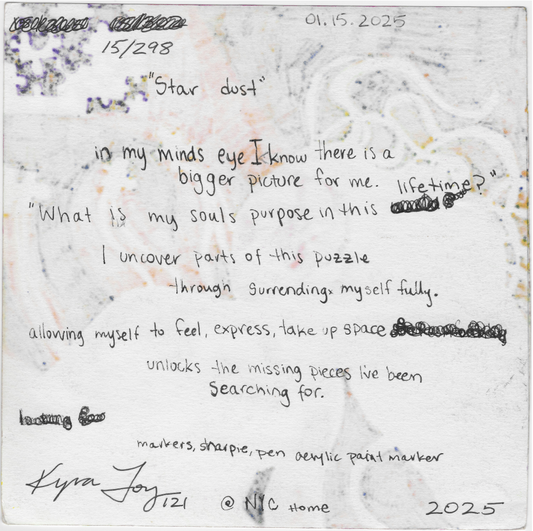 01.15.2025
15/298
"Star dust"
in my minds eye I know there is a
bigger picture for me.
"What is my souls purpose in this lifetime?"
I uncover parts of this puzzle
through surrending myself fully.
allowing myself to feel, express, take up space
unlocks the missing pieces I've been
searching for.
markers, sharpie, pen acrylic paint marker
Kyra Joy 121 @ NYC Home 2025